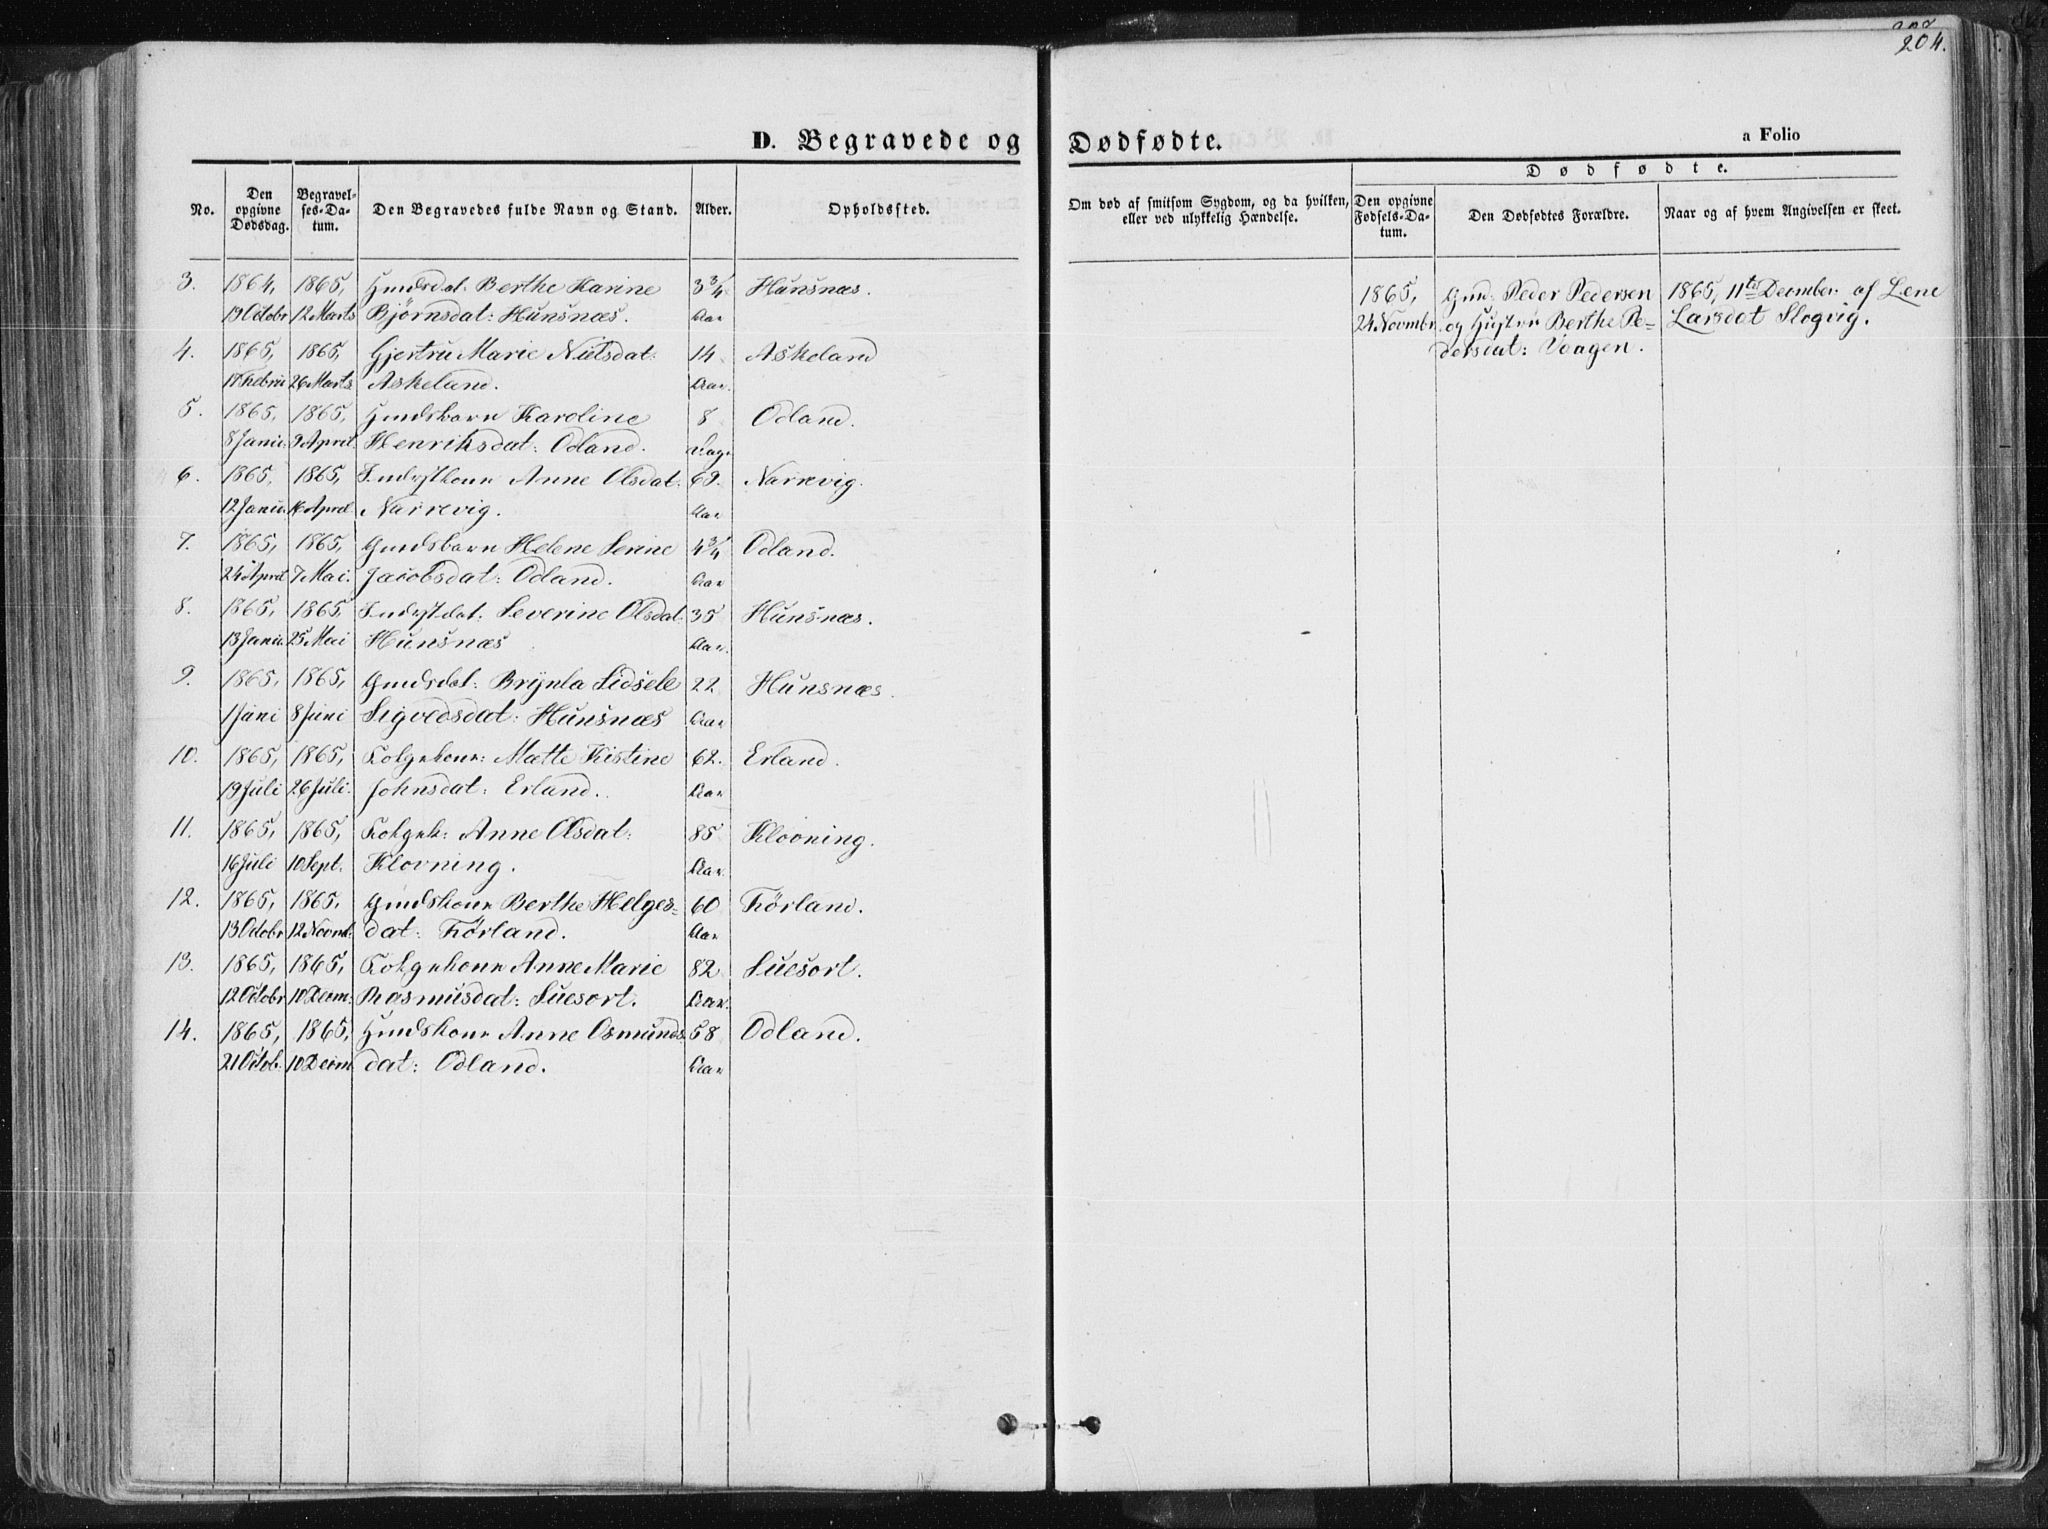 204.
D. Begravede og Dødfødte.
a Folio
No.
Den opgivne Dødsdag.
Begravelses-Datum.
Den Begravedes fulde Navn og Stand.
Alder.
Opholdssted.
Om død af smitsom Sygdom, og da hvilken, eller ved ulykkelig Hændelse.
Dødfødte.
Den opgivne Fødsels-Datum.
Den Dødfødtes Forældre.
Naar og af hvem Angivelsen er skeet.
3. 1864, 1865, Gmdsdat: Berthe Karine 3¾ Hunsnæs.
19 Octobr 12 Marts Bjørnsdat: Hunsnæs. Aar
4. 1865, 1865, Gjertru Marie Nielsdat: 14 Askeland
17 Febru 26 Marts Askeland. Aar.
5. 1865, 1865, Gmdsbarn Karoline 8 Odland.
8 Janu. 9 April Henriksdat: Odland. Dage
6. 1865, 1865, Anne Olsdat: 69. Narrevig.
12 Janu. 16 April Narrevig. Aar
7. 1865, 1865, Gmdsbarn Helene Serine 4¾ Odland.
24 April 7 Mai. Jacobsdat: Odland. Aar
8. 1865, 1865 Severine Olsdat. 35 Hunsnæs.
13 Janu. 25 Mai Hunsnæs Aar.
9. 1865, 1865, Gmdsdat: Brynla Lidsele 22 Hunsnæs.
1 Juni 8 Juni Sigvedsdat: Hunsnæs Aar
10. 1865, 1865, Folgekone: Mætte Kistine 62. Erland.
19 Juli 26 Juli. Johnsdat: Erland. Aar
11. 1865, 1865, Folgek: Anne Olsdat: 85 Klovning.
16 Juli 10 Sept. Klovning. Aar.
12. 1865, 1865, Gmdskone Berthe Helges- 60 Førland.
13 Octobr 12 Novmb. dat: Førland. Aar
13. 1865, 1865, Folgekone Anne Marie 82 Suesort.
12 Octobr 10 Decm: Rasmusdat: Suesort. Aar.
14. 1865, 1865, Gmdskone Anne Osmunds- 58 Odland.
21 Octob. 10 Decm dat: Odland. Aar
1865, Gmd: Peder Pedersen 1865, 11te December af Lene
24 Novmbr. og Hustru Berthe Pe- Larsdat Slogvig.
dersdat: Vaagen.